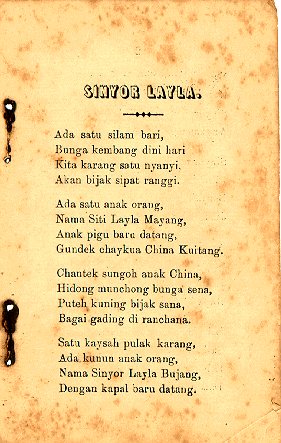 SINYOR LAYLA.
Ada satu silam bari,
Bunga kembang dini hari
Kita karang satu nyanyi.
Akan bijak sipat ranggi.
Ada satu anak orang,
Nama Siti Layla Mayang,
Anak pigu baru datang,
Gundek chaykua China Kuitang.
Chantek sungoh anak China,
Hidong munchong bunga sena,
Puteh kuning bijak sana,
Bagai gading di ranchana.
Satu kaysah pulak karang,
Ada kunun anak orang,
Nama Sinyor Layla Bujang,
Dengan kapal baru datang.